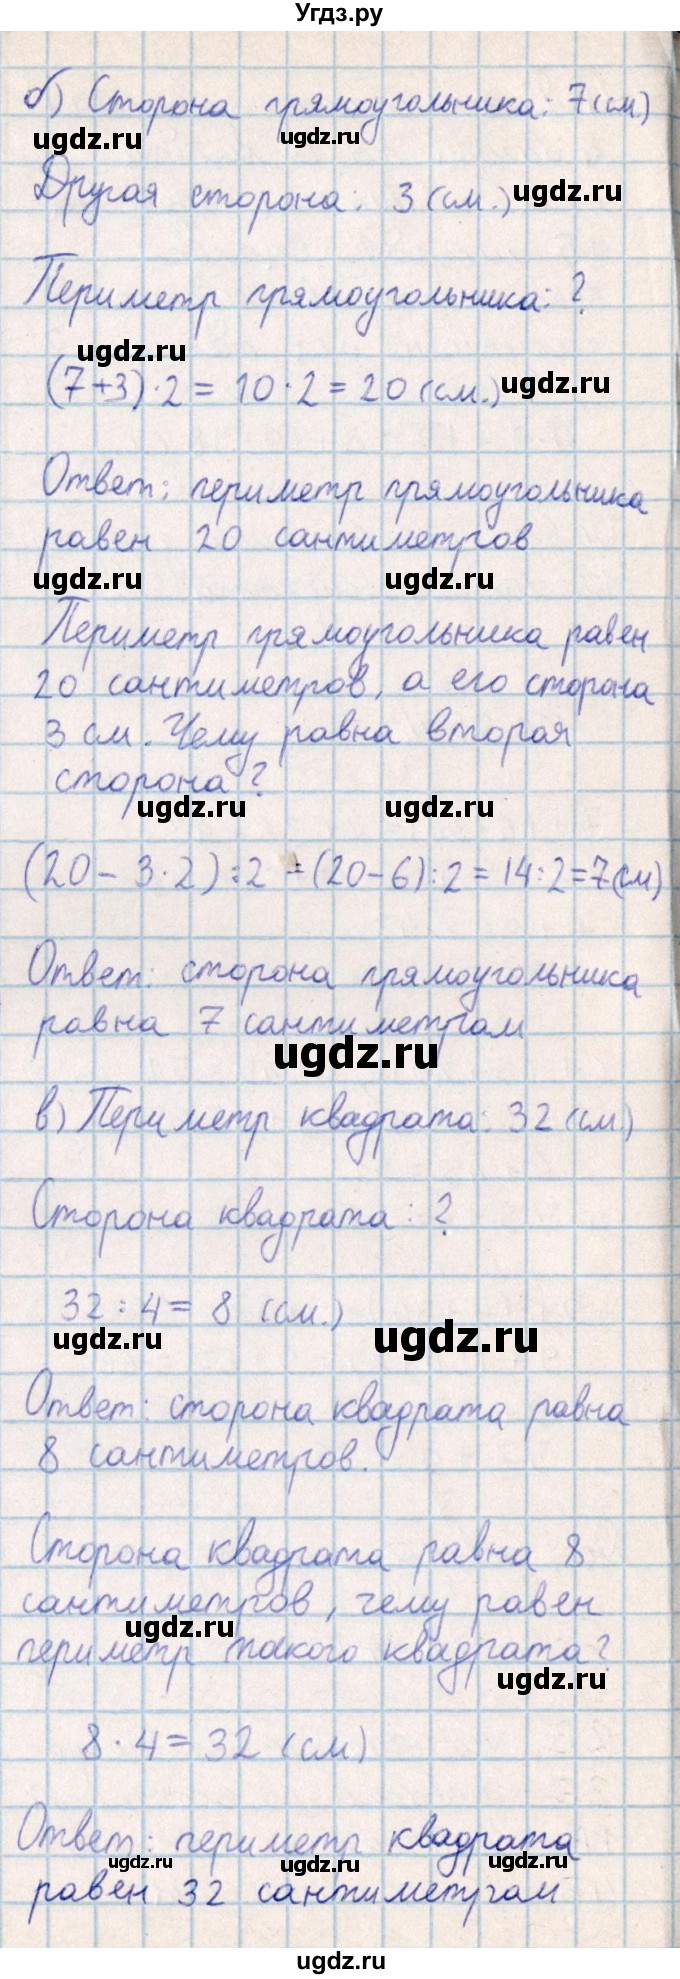 Угдз.ру
б) Сторона прямоугольника: 7 (см.)
ugdz.ru ugdz.ru
Другая сторона: 3 (см.) ugdz.ru
Периметр прямоугольника: ?
ugdz.ru
(7+3)·2 = 10·2 = 20 (см.) ugdz.ru
Ответ: периметр прямоугольника
равен 20 сантиметров
ugdz.ru ugdz.ru
Периметр прямоугольника равен
20 сантиметров, а его сторона
3 см. Чему равна вторая
сторона?
ugdz.ru ugdz.ru
(20 - 3·2):2 = (20-6):2 = 14:2=7(см)
Ответ: сторона прямоугольника
равна 7 сантиметрам
ugdz.ru
в) Периметр квадрата: 32 (см.)
Сторона квадрата: ?
32:4 = 8 (см.)
ugdz.ru ugdz.ru
Ответ: сторона квадрата равна
8 сантиметров.
Сторона квадрата равна 8
сантиметров, чему равен
ugdz.ru
периметр такого квадрата?
ugdz.ru
8·4=32 (см)
Ответ: периметр квадрата
ugdz.ru ugdz.ru ugdz.ru
равен 32 сантиметрам
ugdz.ru